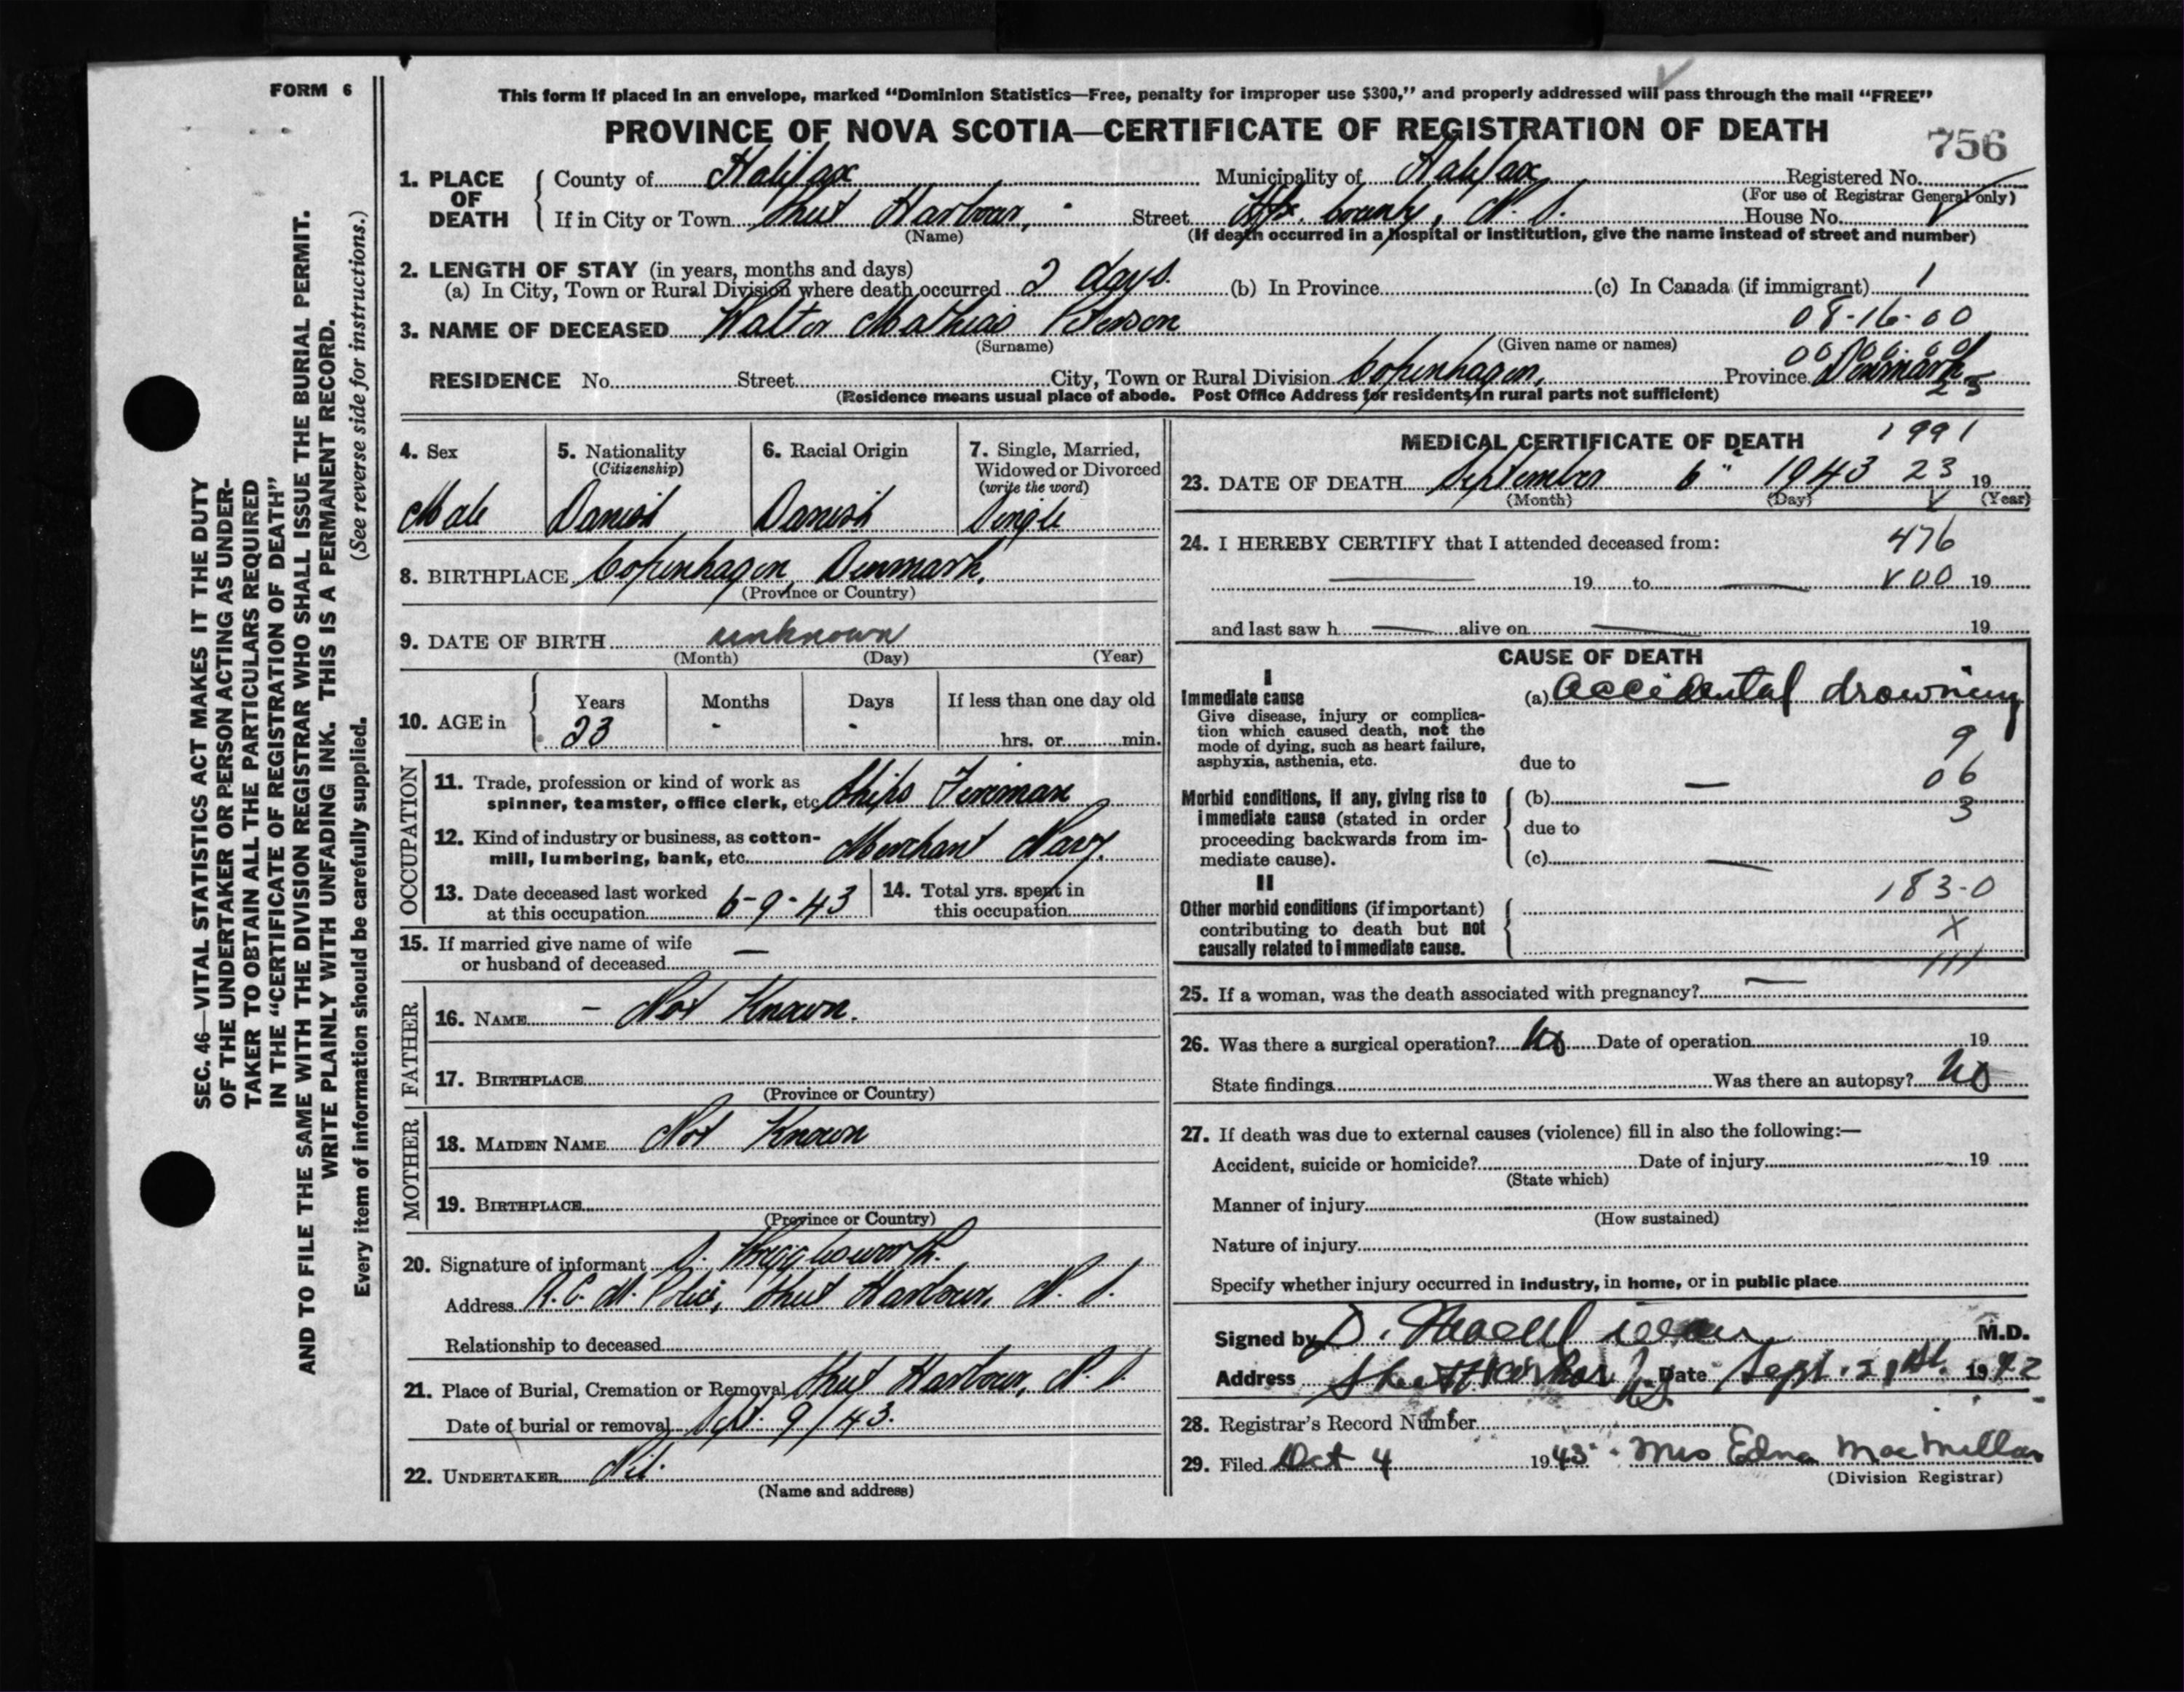 FORM 6
This form if placed in an envelope, marked “Dominion Statistics—Free, penalty for improper use $300,” and properly addressed will pass through the mail “FREE”
PROVINCE OF NOVA SCOTIA—CERTIFICATE OF REGISTRATION OF DEATH
756
1. PLACE OF DEATH
County of Halifax Municipality of Halifax Registered No.
(For use of Registrar General only)
If in City or Town Sheet Harbour, Street Hfx. County, N. S. House No.
(Name) (If death occurred in a hospital or institution, give the name instead of street and number)
2. LENGTH OF STAY (in years, months and days)
(a) In City, Town or Rural Division where death occurred 2 days. (b) In Province (c) In Canada (if immigrant) 1
3. NAME OF DECEASED Walter Mathias Peterson 08-16-00
(Surname) (Given name or names)
RESIDENCE No. Street City, Town or Rural Division Copenhagen, Province Denmark
(Residence means usual place of abode. Post Office Address for residents in rural parts not sufficient) 23
4. Sex
Male
5. Nationality
(Citizenship)
Danish
6. Racial Origin
Danish
7. Single, Married,
Widowed or Divorced
(write the word)
Single
8. BIRTHPLACE Copenhagen, Denmark.
(Province or Country)
9. DATE OF BIRTH unknown
(Month) (Day) (Year)
10. AGE in Years Months Days If less than one day old
23 - - hrs. or min.
OCCUPATION
11. Trade, profession or kind of work as
spinner, teamster, office clerk, etc. Ships Fireman
12. Kind of industry or business, as cotton-
mill, lumbering, bank, etc. Merchant Navy.
13. Date deceased last worked
at this occupation 6-9-43
14. Total yrs. spent in
this occupation
15. If married give name of wife
or husband of deceased —
FATHER
16. NAME — Not Known.
17. BIRTHPLACE
(Province or Country)
MOTHER
18. MAIDEN NAME Not Known
19. BIRTHPLACE
(Province or Country)
20. Signature of informant
Address R. C. M. Police, Sheet Harbour, N. S.
Relationship to deceased
21. Place of Burial, Cremation or Removal Sheet Harbour, N. S.
Date of burial or removal Sept. 9/43.
22. UNDERTAKER Nil.
(Name and address)
MEDICAL CERTIFICATE OF DEATH 1991
23. DATE OF DEATH September 6" 1943 23 19
(Month) (Day) (Year)
24. I HEREBY CERTIFY that I attended deceased from: 476
— 19 to — 19
and last saw h — alive on — 19
CAUSE OF DEATH
I
Immediate cause
Give disease, injury or complica-
tion which caused death, not the
mode of dying, such as heart failure,
asphyxia, asthenia, etc.
(a) accidental drowning
9
due to
06
Morbid conditions, if any, giving rise to
immediate cause (stated in order
proceeding backwards from im-
mediate cause).
(b) —
3
due to
(c) —
II
Other morbid conditions (if important)
contributing to death but not
causally related to immediate cause.
183-0
X
111
25. If a woman, was the death associated with pregnancy? —
26. Was there a surgical operation? No Date of operation 19
State findings Was there an autopsy? No
27. If death was due to external causes (violence) fill in also the following:—
Accident, suicide or homicide? Date of injury 19
(State which)
Manner of injury
(How sustained)
Nature of injury
Specify whether injury occurred in industry, in home, or in public place
Signed by D. M.D.
Address Sheet Harbor N.S. Date Sept. 21st. 19
28. Registrar's Record Number
29. Filed Oct 4 1943 Mrs Edna MacMillan
(Division Registrar)
SEC. 46—VITAL STATISTICS ACT MAKES IT THE DUTY
OF THE UNDERTAKER OR PERSON ACTING AS UNDER-
TAKER TO OBTAIN ALL THE PARTICULARS REQUIRED
IN THE “CERTIFICATE OF REGISTRATION OF DEATH”
AND TO FILE THE SAME WITH THE DIVISION REGISTRAR WHO SHALL ISSUE THE BURIAL PERMIT.
WRITE PLAINLY WITH UNFADING INK. THIS IS A PERMANENT RECORD.
Every item of information should be carefully supplied. (See reverse side for instructions.)